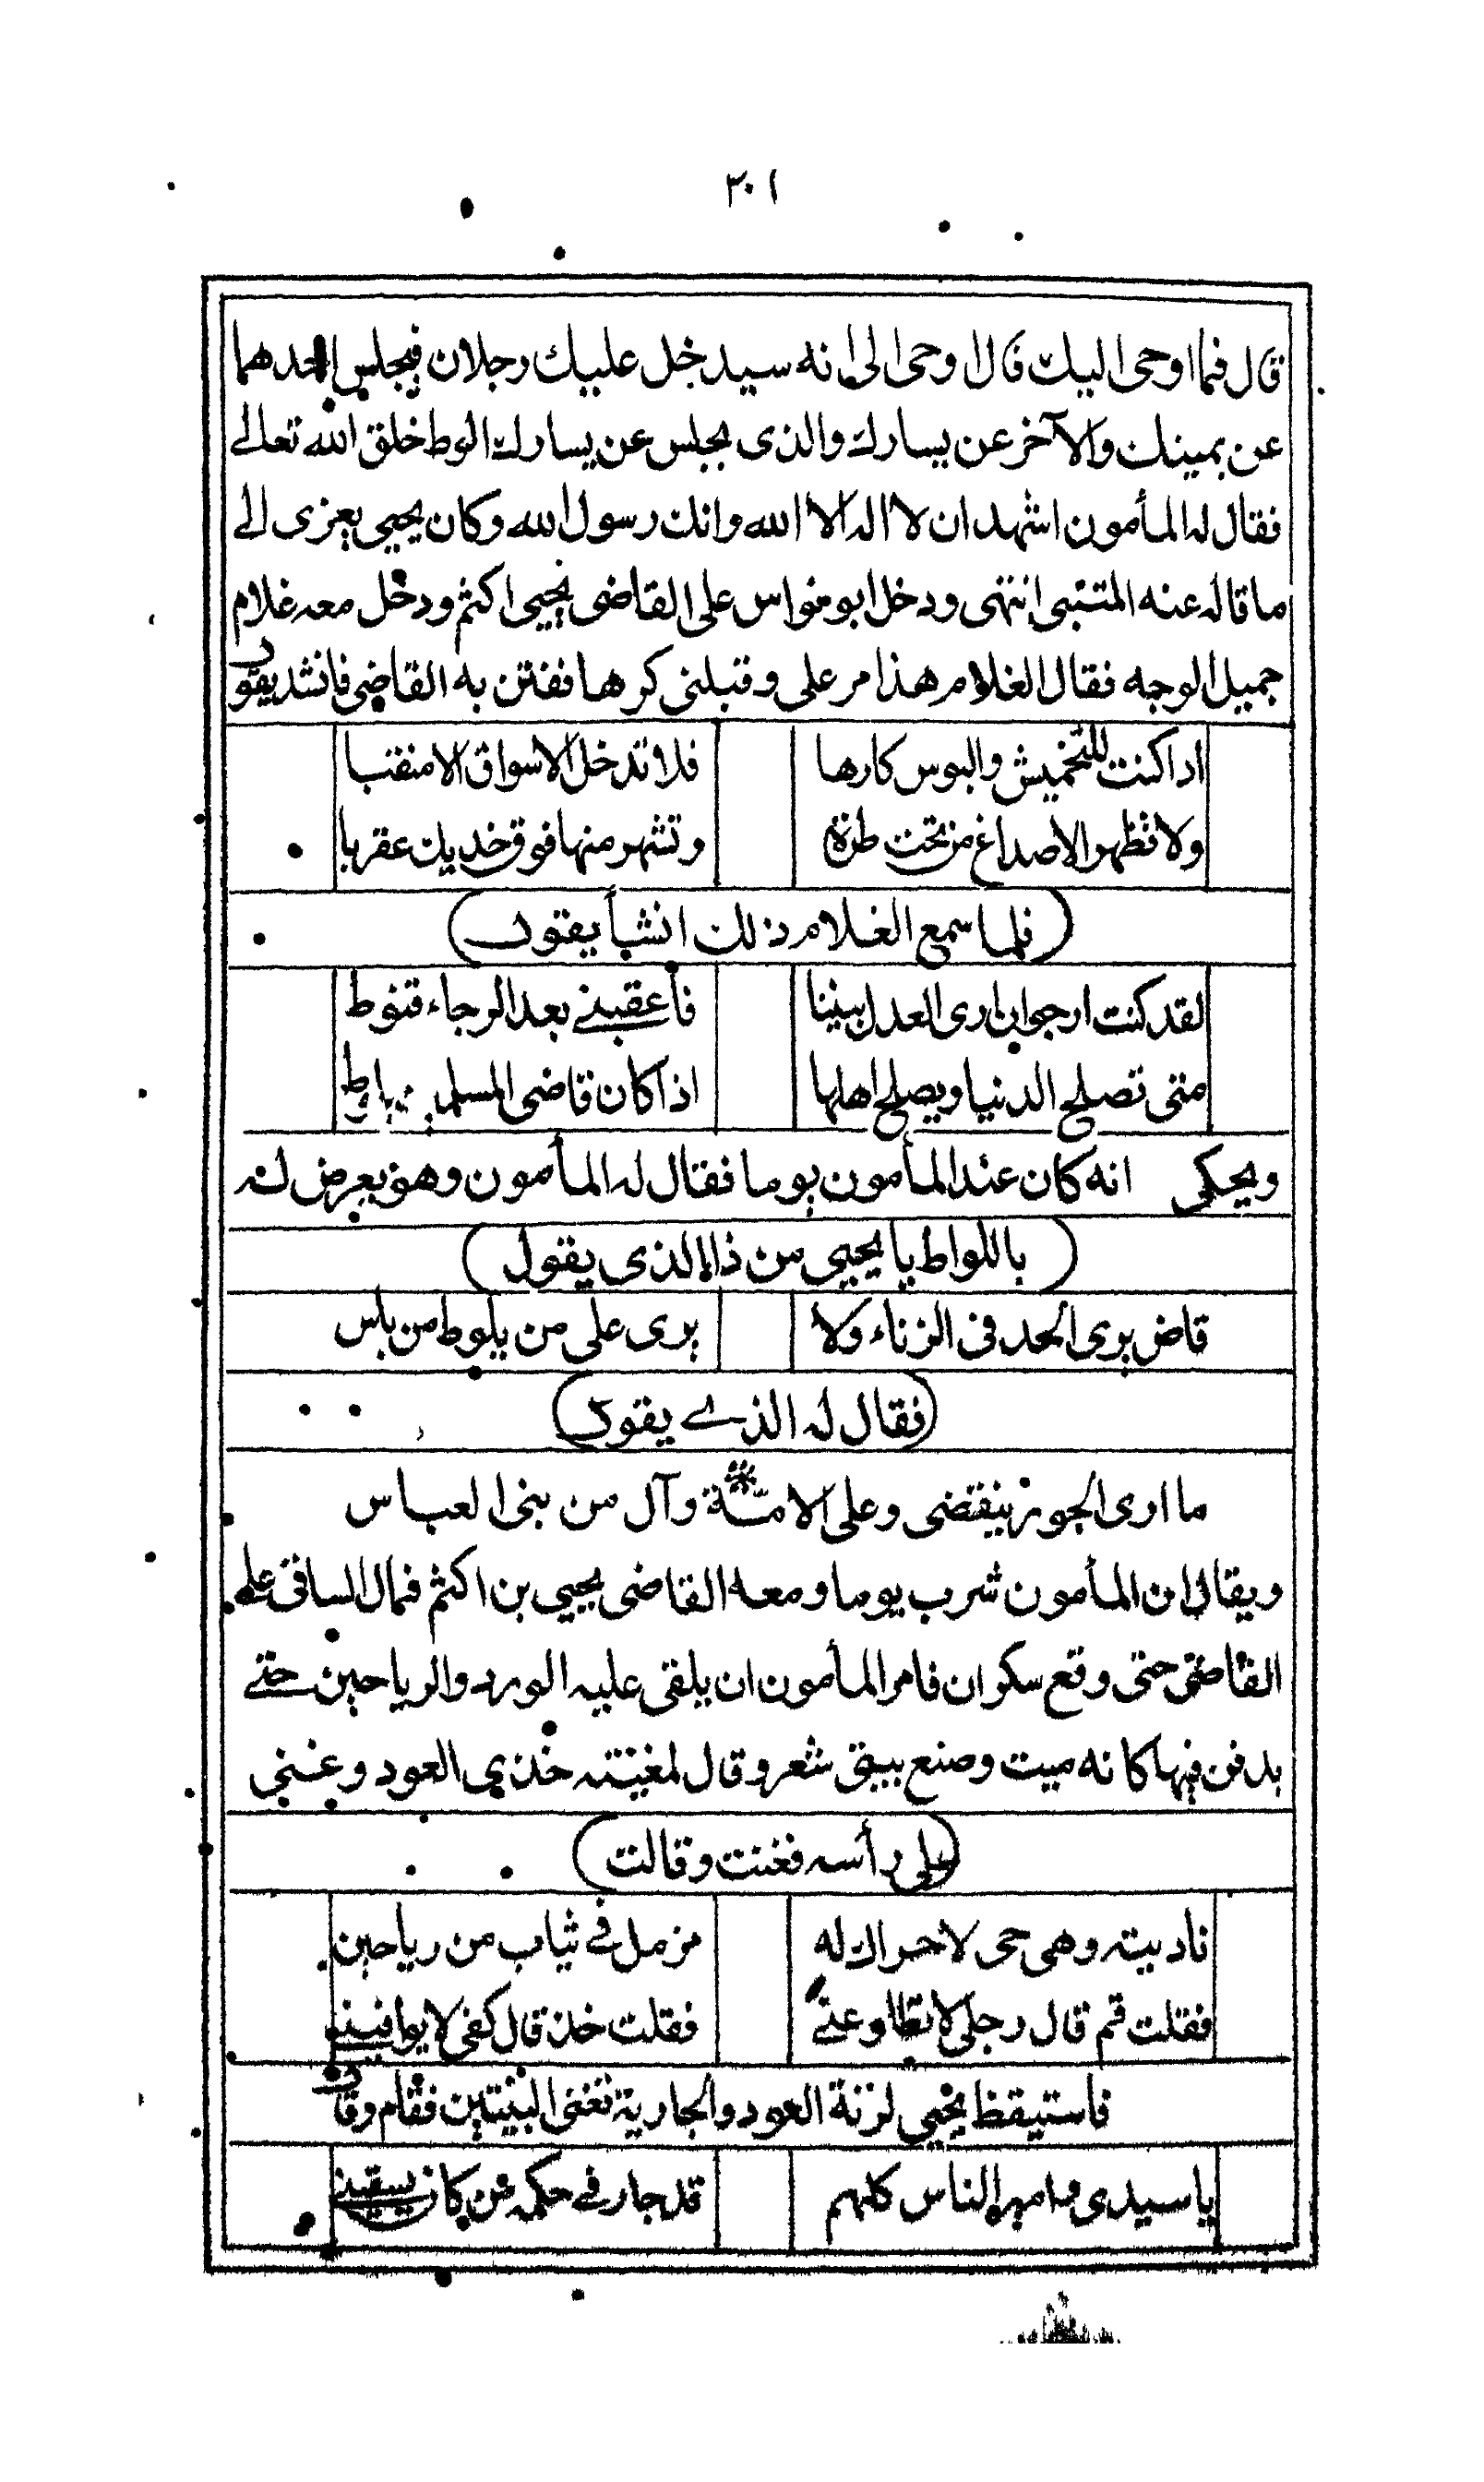 ٣٠١
قال فما اوحى اليك قال اوحى الى انه سيدخل عليك رجلان فيجلس احدهما
عن يمينك والآخر عن يسارك والذى يجلس عن يسارك الوط خلق الله تعالى
فقال له المأمون اشهد ان لا اله الا الله وانك رسول الله وكان يحيى يعزى الى
ما قاله عنه المتنبى انتهى ودخل ابو نواس على القاضى يحيى اكثم ودخل معه غلام
جميل الوجه فقال الغلام هذا مر على وقبلنى كرها ففتن به القاضى فانشد يقول
اذا كنت للتخميش والبوس كارها فلا تدخل الاسواق الا منقبا
ولا تظهر الاصداغ من تحت طرة وتشهر منها فوق خديك عقربا
فلما سمع الغلام ذلك انشأ يقول
لقد كنت ارجو ان ارى العدل بيننا فأعقبنى بعد الرجاء قنوط
متى تصلح الدنيا ويصلح اهلها اذا كان قاضى المسلمين يلوط
ويحكى انه كان عند المأمون يوما فقال له المأمون وهو يعرض له
باللواط يا يحيى من ذا الذى يقول
قاض يرى الحد فى الزناء ولا يرى على من يلوط من باس
فقال له الذى يقول
ما ارى الجور ينقضى وعلى الامة وآل من بنى العباس
ويقال ان المأمون شرب يوما ومعه القاضى يحيى بن اكثم فمال الساقى على
القاضى حتى وقع سكران فامر المأمون ان يلقى عليه الورد والرياحين حتى
يدفن فيها كانه ميت وصنع بيتى شعر وقال لمغنيته خذى العود وغنى
على رأسه فغنت وقالت
ناديته وهى حى لا حراك له مزمل فى ثياب من رياحين
فقلت قم قال رجلى لا تطاوعنى فقلت خذ قال كفى لا يوافينى
فاستيقظ يحيى لرنة العود والجارية تغنى البيتين فقام وقال
يا سيدى وامير الناس كلهم قد جار فى حكمه من كان يسقينى